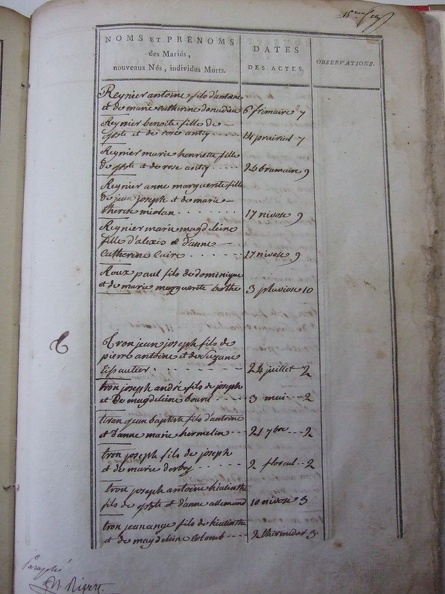 NOMS ET PRÉNOMS
des Mariés,
nouveaux Nés, individus Morts.
DATES
DES ACTES.
OBSERVATIONS.
Reynier antoine fils d'antoine
et de marie catherine donadieu 6 frimaire 7
Reynier benoite fille de
et de rose 14 prairial 7
Reynier marie henriette fille
de et de rose 26 brumaire 9
Reynier anne marguerite fille
de jean joseph et de marie
therese miolan 17 nivose 9
Reynier marie magdeleine
fille d'alexis et d'anne
catherine Caire 17 nivose 9
Roux paul fils de dominique
et de marie marguerite 3 pluviose 10
T
Tron jean joseph fils de
pierre antoine et de suzane
24 juillet 2
tron joseph andré fils de joseph
et de magdeleine 3 mai 2
tron jean baptiste fils d'antoine
et d'anne marie hermelin 21 7bre 2
tron joseph fils de joseph
et de marie 2 floreal 2
tron joseph antoine hiacinthe
fils de et d'anne allemand 10 nivose 3
tron jean ange fils de hiacinthe
et de magdeleine colomb 2 thermidor 3
Paraphé